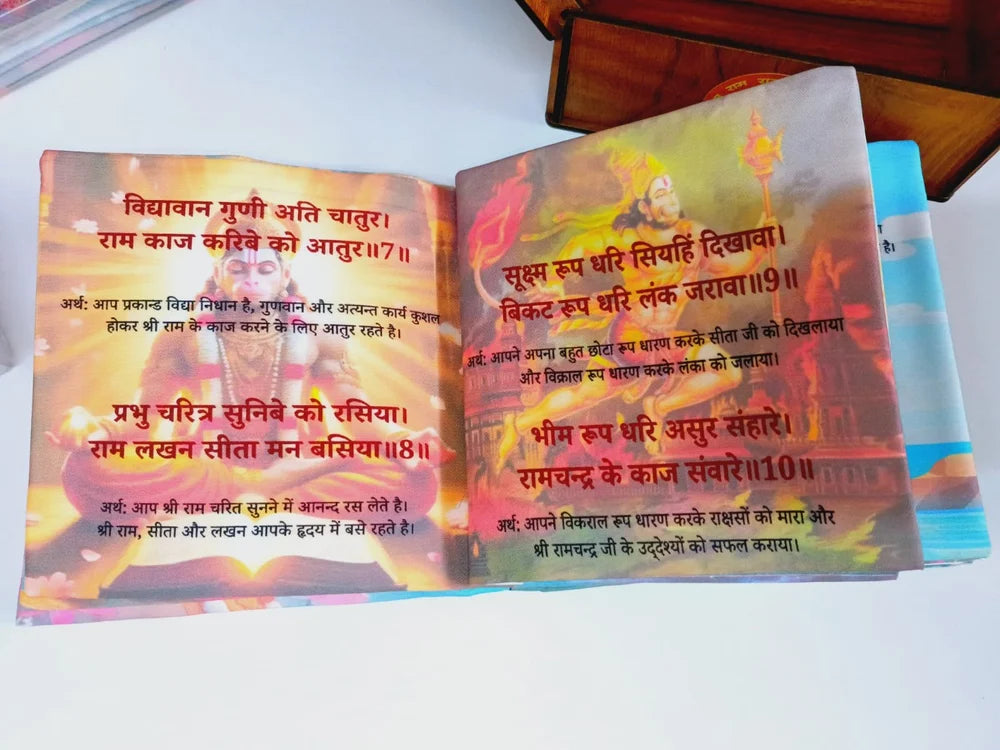 विद्यावान गुणी अति चातुर।
राम काज करिबे को आतुर॥7॥
अर्थ: आप प्रकान्ड विद्या निधान है, गुणवान और अत्यन्त कार्य कुशल
होकर श्री राम के काज करने के लिए आतुर रहते है।
प्रभु चरित्र सुनिबे को रसिया।
राम लखन सीता मन बसिया॥8॥
अर्थ: आप श्री राम चरित सुनने में आनन्द रस लेते है।
श्री राम, सीता और लखन आपके हृदय में बसे रहते है।
सूक्ष्म रूप धरि सियहिं दिखावा।
बिकट रूप धरि लंक जरावा॥9॥
अर्थ: आपने अपना बहुत छोटा रूप धारण करके सीता जी को दिखलाया
और विक्राल रूप धारण करके लंका को जलाया।
भीम रूप धरि असुर संहारे।
रामचन्द्र के काज संवारे॥10॥
अर्थ: आपने विकराल रूप धारण करके राक्षसों को मारा और
श्री रामचन्द्र जी के उद्देश्यों को सफल कराया।
है।
राम